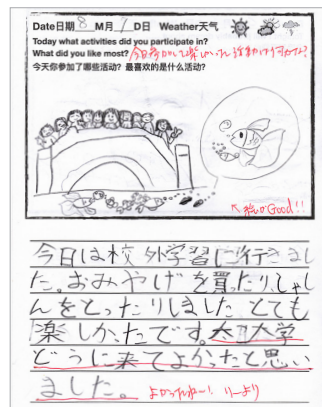 Date日期 8 M月 1 D日 Weather天气
Today what activities did you participate in?
What did you like most? 今日参加して楽しかった活動は何かな?
今天你参加了哪些活动? 最喜欢的是什么活动?
絵がGood!!
今日は校外学習に行きまし
た。おみやげを買ったりしゃし
んをとったりしました とても
楽しかったです。大大学
どうに来てよかったと思い
ました。 よかったねー! りーより